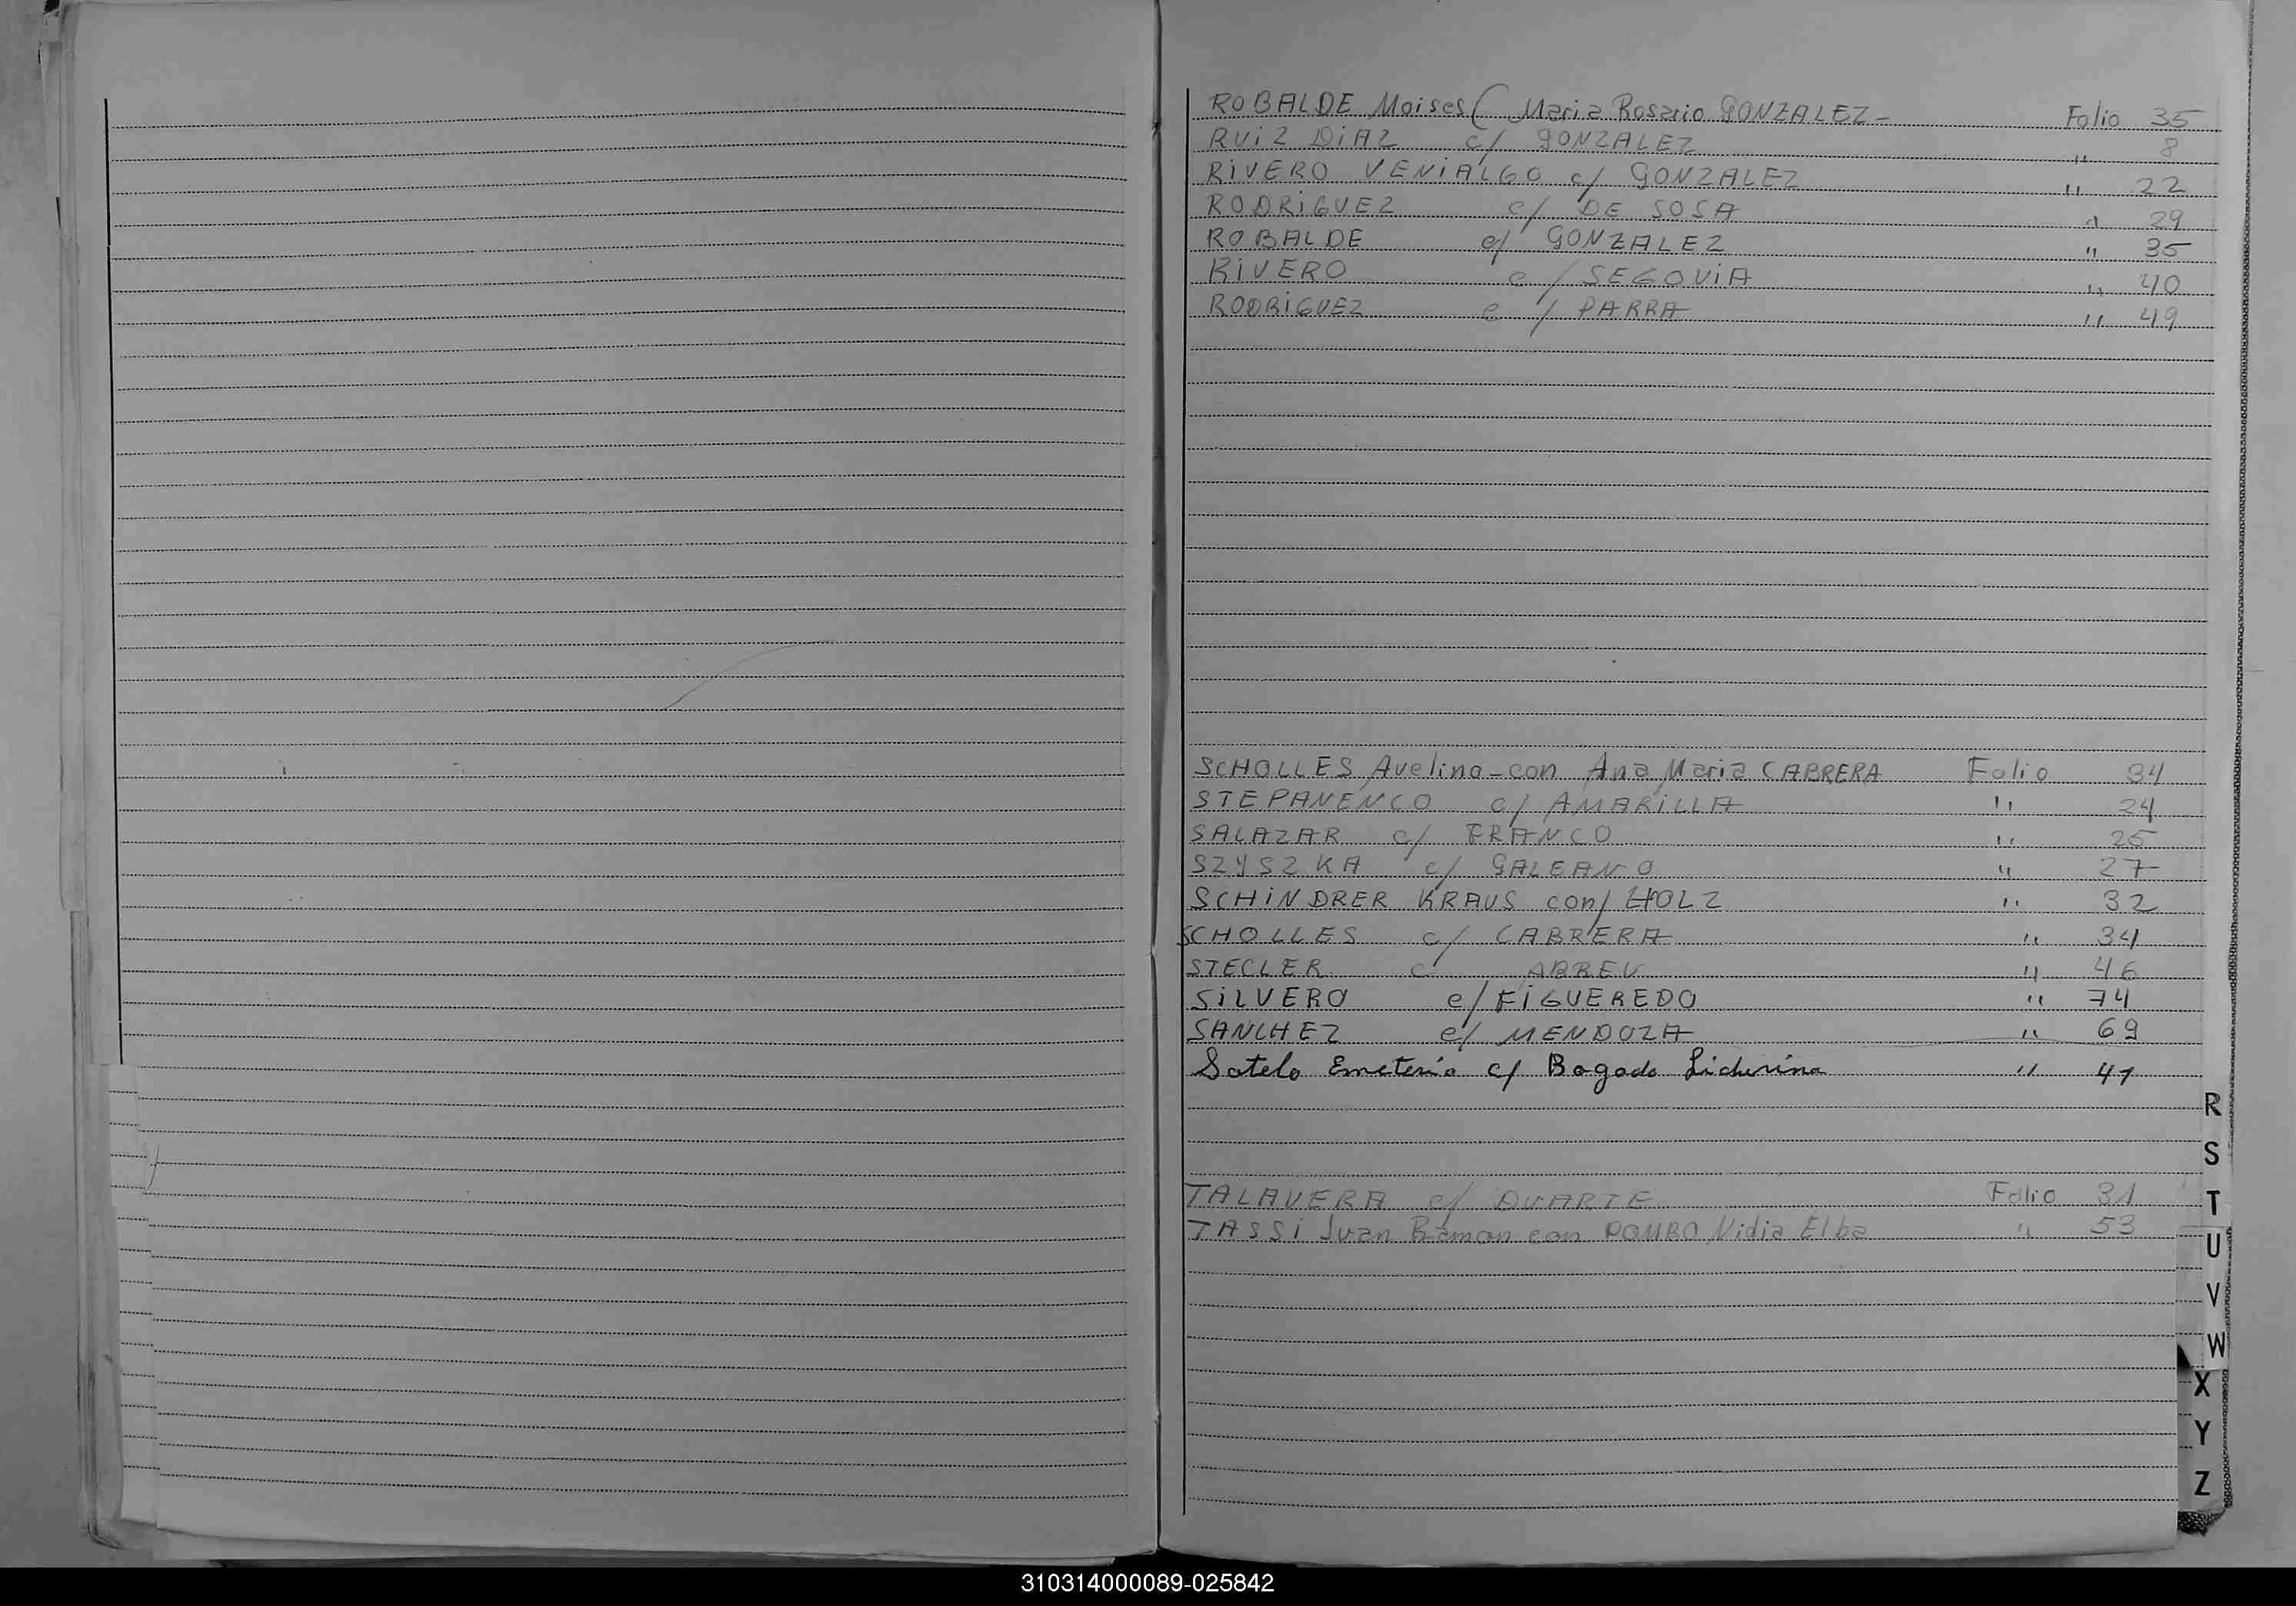 ROBALDE Moises ( Maria Rosario GONZALEZ - Folio 35
RUIZ DIAZ c/ GONZALEZ " 8
RIVERO VENIALGO c/ GONZALEZ " 22
RODRIGUEZ c/ DE SOSA " 29
ROBALDE c/ GONZALEZ " 35
RIVERO c/ SEGOVIA " 40
RODRIGUEZ c/ PARRA " 49
SCHOLLES Avelino - con Ana Maria CABRERA Folio 34
STEPANENCO c/ AMARILLA " 24
SALAZAR c/ FRANCO " 25
SZYSZKA c/ GALEANO " 27
SCHINDRER KRAUS con/ HOLZ " 32
SCHOLLES c/ CABRERA " 34
STECLER c/ ABREU " 46
SILVERO c/ FIGUEREDO " 74
SANCHEZ c/ MENDOZA " 69
Sotelo Emeterio c/ Bogado " 41
TALAVERA c/ DUARTE Folio 31
TASSI Juan Ramon con POMBO Nidia Elba " 53
R
S
T
U
V
W
X
Y
Z
310314000089-025842